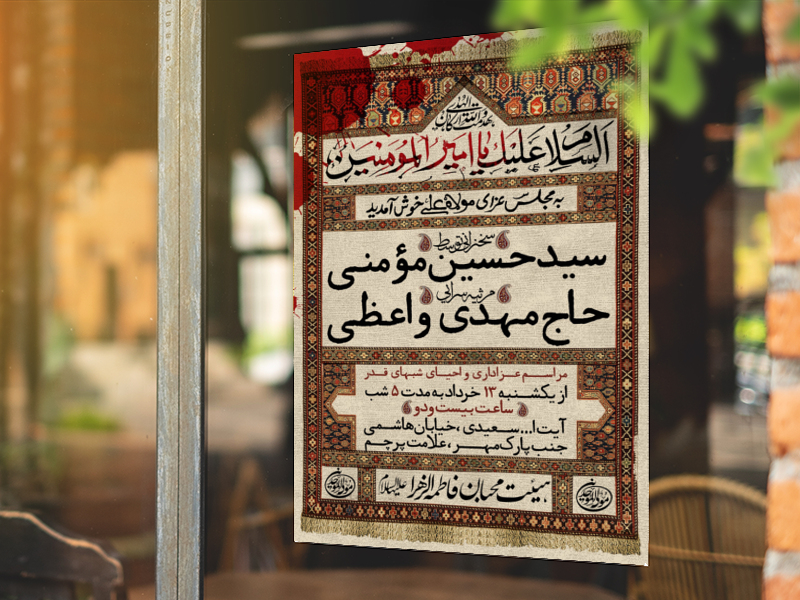 تهدمت والله ارکان الهدی
السلام علیک یا امیر المؤمنین
به مجلس عزای مولا علی خوش آمدید
سخنرانی توسط
سید حسین مؤمنی
مرثیه سرایی
حاج مهدی واعظی
مراسم عزاداری و احیای شبهای قدر
از یکشنبه ۱۳ خرداد به مدت ۵ شب
ساعت بیست و دو
آیت ا... سعیدی ، خیابان هاشمی
جنب پارک مهر ، علامت پرچم
هیئت محبان فاطمه الزهرا علیهاالسلام